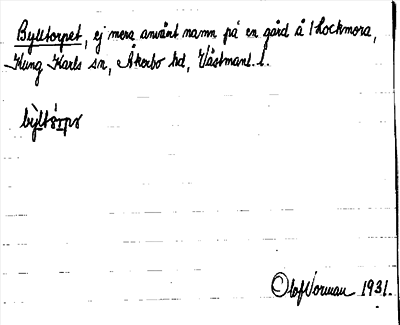 Bylltorpet, ej mera använt namn på en gård å Thockmora,
Kung Karls sn, Åkerbo hd, Västmanl. l.
Olof Vorman 1931.